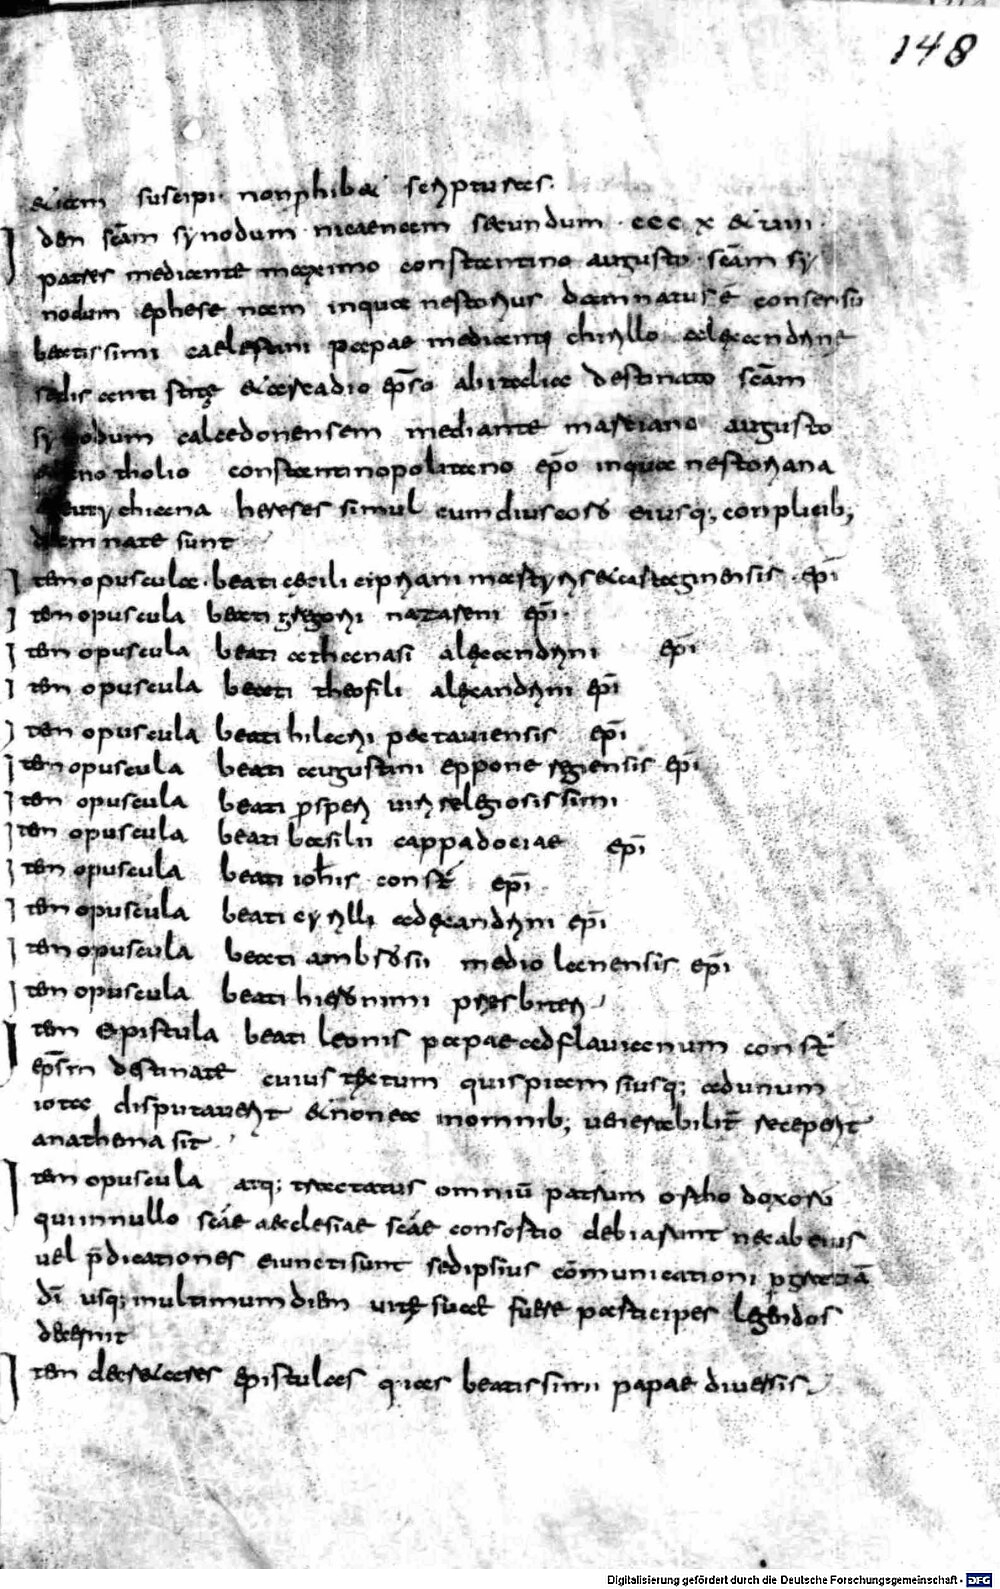 148
&iam suscipi non phib& scripturas.
Item scām synodum nicaenam secundum ccc x & viii
patres mediante maximo constantino augusto scām sy
nodum ephesenam inqua nestorius damnatus ē consensu
beatissimi caelestini papae mediante chirillo alexandrinę
sedis antistitę & arcadio ep̄so abitalia destinato scām
synodum calcedonensem mediante marciano augusto
& anatholio constantinopolitano ep̄o inqua nestoriana
& eutychiana hereses simul cum dioscoro eiusq; conplicib;
damnate sunt
Item opuscula beati cęcili cipriani martyris & cartaginensis ep̄i
Item opuscula beati gregorii nazareni ep̄i
Item opuscula beati athanasi alexandrini ep̄i
Item opuscula beati theofili alexandrini ep̄i
Item opuscula beati hilarii pectaviensis ep̄i
Item opuscula beati augustini eppone regiensis ep̄i
Item opuscula beati prosperi viri relegiosissimi
Item opuscula beati basilii cappadociae ep̄i
Item opuscula beati ioh̄is const̄ ep̄i
Item opuscula beati cyrilli alexandrini ep̄i
Item opuscula beati ambrosii mediolanensis ep̄i
Item opuscula beati hieronimi presbiteri
Item epistula beati leonis papae ad flavianum const̄
ep̄sm destinate cuius textum quispiam siusq; adunum
iota disputaverit & non ea inomnib; venerabilit̄ receperit
anathema sit
Item opuscula atq; tractatus omniū patrum orthodoxorū
quiinnullo scāe aecclesiae scāe consortio debiasunt necabeius
vel p̄dicationes eiunctisunt sedipsius com̄unicationi p gratiā
dī usq; inultimum diem vitę suae fuere participes legendos
decernit
Item decretales epistulas quas beatissimi papae diversis
Digitalisierung gefördert durch die Deutsche Forschungsgemeinschaft - DFG